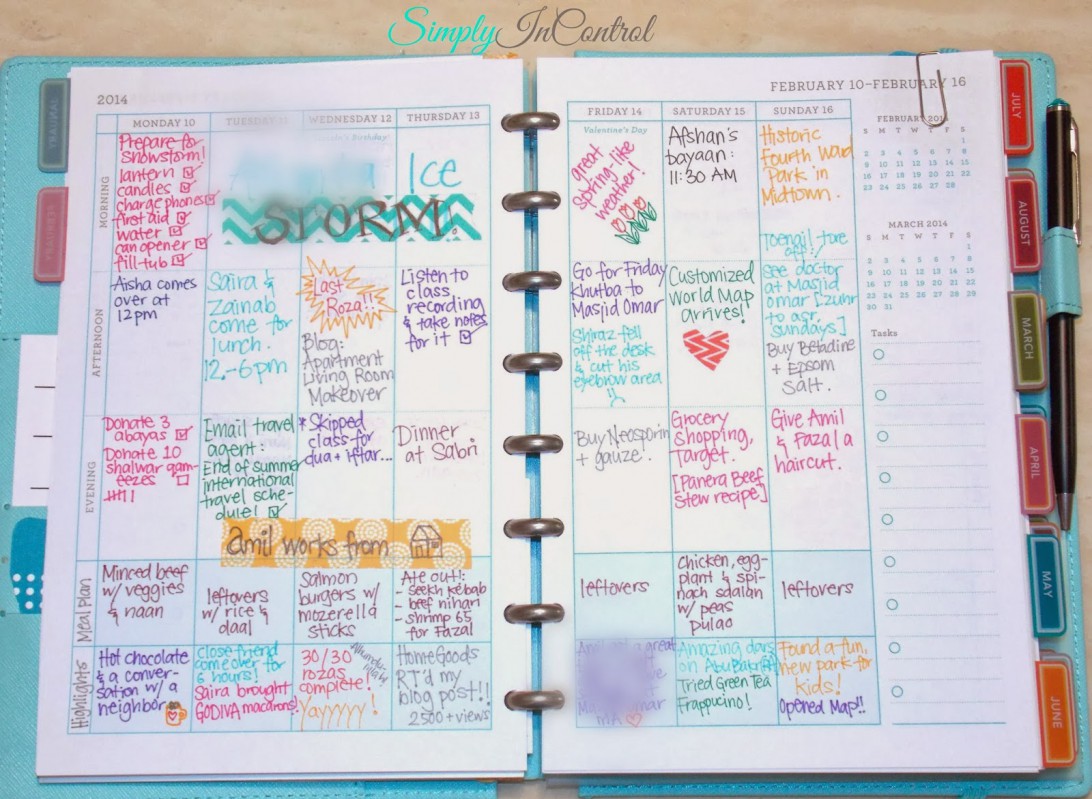 Simply InControl
2014
MONDAY 10
TUESDAY 11
WEDNESDAY 12
THURSDAY 13
MORNING
Prepare for
snowstorm!
lantern
candles
charge phones
first aid
water
can opener
fill tub
Birthday
Ice
STORM!
AFTERNOON
Aisha comes
over at
12pm
Saira &
Zainab
come for
lunch.
12-6pm
Last
Roza!!
Blog:
Apartment
Living Room
Makeover
Listen to
class
recording
& take notes
for it
EVENING
Donate 3
abayas
Donate 10
shalwar qam-
eezes
Email travel
agent:
End of summer
international
travel sche-
dule!
*Skipped
class for
dua + iftar...
Dinner
at Sabri
amil works from
Meal Plan
Minced beef
w/ veggies
& naan
leftovers
w/ rice &
daal
Salmon
burgers w/
mozerella
sticks
Ate out!:
- seekh kebab
- beef nihari
- shrimp 65
for Fazal
Highlights
Hot chocolate
& a conver-
sation w/ a
neighbor
close friend
came over for
6 hours!
Saira brought
GODIVA macarons!!
30/30
rozas
complete!
Yayyyyy!
HomeGoods
RT'd my
blog post!!
2500+ views
FEBRUARY 10–FEBRUARY 16
FRIDAY 14
SATURDAY 15
SUNDAY 16
Valentine's Day
great
spring-like
weather!
Afshan's
bayaan:
11:30 AM
Historic
Fourth Ward
Park in
Midtown.
Toenail tore
off!
Go for Friday
Khutba to
Masjid Omar
Shiraz fell
off the desk
& cut his
eyebrow area
Customized
World Map
arrives!
See doctor
at Masjid
Omar [zuhr
to asr,
sundays]
Buy Betadine
+ Epsom
salt.
Buy Neosporin
+ gauze!
Grocery
shopping,
Target.
[Panera Beef
Stew recipe]
Give Amil
& Fazal a
haircut.
leftovers
chicken, egg-
plant & spi-
nach saalan
w/ peas
pulao
leftovers
great
Amazing dars
on AbuBakr
Tried Green Tea
Frappucino!
Found a fun,
new park for
kids!
Opened Map!!
FEBRUARY 2014
S M T W T F S
1
2 3 4 5 6 7 8
9 10 11 12 13 14 15
16 17 18 19 20 21 22
23 24 25 26 27 28
MARCH 2014
S M T W T F S
1
2 3 4 5 6 7 8
9 10 11 12 13 14 15
16 17 18 19 20 21 22
23 24 25 26 27 28 29
30 31
Tasks
JANUARY
FEBRUARY
JULY
AUGUST
MARCH
APRIL
MAY
JUNE